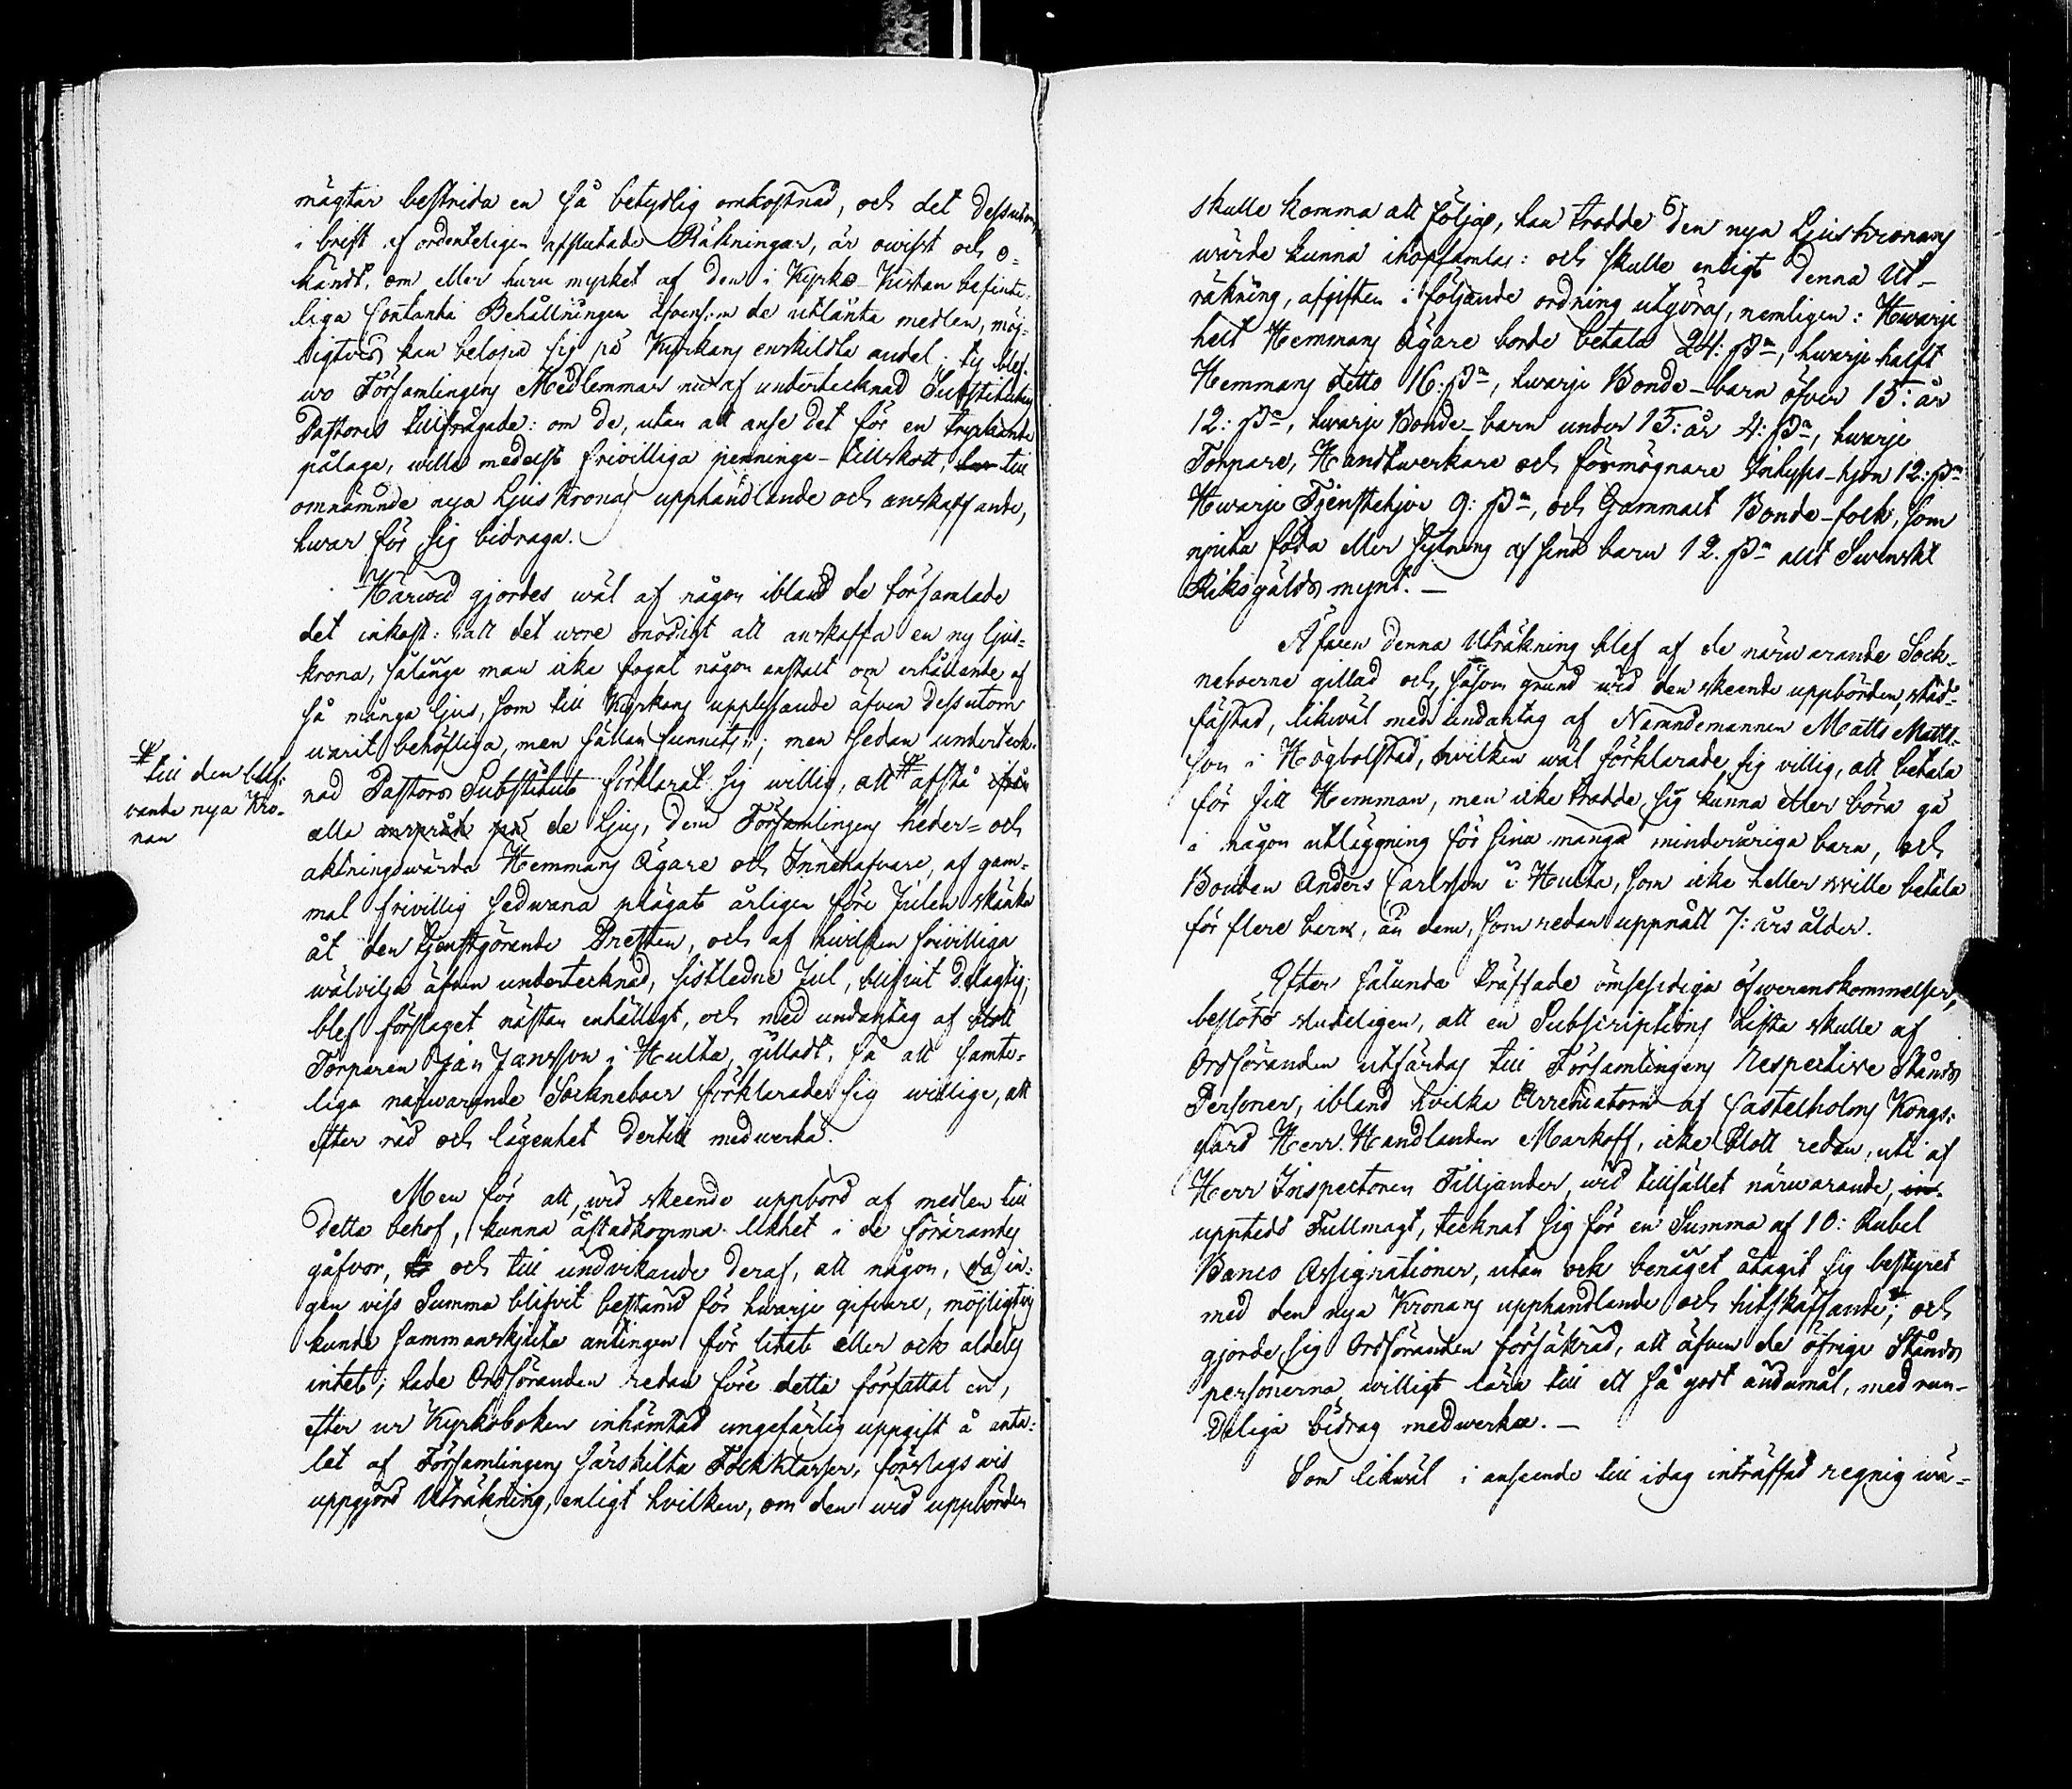 mägtar bestrida en så betydlig omkostnad, och det dessutom,
i brist af ordenteligen afslutade Räkningar, är owisst och o-
kändt, om eller huru mycket af den i Kyrko-Kistan befinte-
liga Contanta Behållningen äfvensom de utlånta medlen, möj-
ligtvis kan belöpa sig på Kyrkans enskildta andel; ty blef-
wo Församlingens Medlemmar nu af undertecknad Substituten
Pastoris tillfrågade: om de, utan att anse det för en tryckande
pålaga, wille medelst frivilliga penninge-tillskott, till
omnämnde nya Ljus Kronas upphandlande och anskaffande,
hwar för sig bidraga.
Härwid gjordes wäl af någon ibland de församlade
det inkast: att det wore onödigt att anskaffa en ny ljus-
krona, sålänge man icke fogat någon anstalt om erhållande af
så många ljus, som till Kyrkans upplysande äfven dessutom
warit behöfliga, men sällan funnits; men sedan underteck-
nad Pastors Substitut förklarat sig willig, att # afstå ifrån
# till den blif-
vande nya Kro-
nan
alla anspråk på de Ljus, dem Församlingens heder- och
aktningswärda Hemmans Ägare och Innehafvare, af gam-
mal frivillig sedwana plägat årligen före Julen skänka
åt den tjenstgörande Presten, och af hvilken frivilliga
wälvilja äfven undertecknad, sistledne Jul, blifvit delagtig;
blef förslaget nästan enhälligt, och med undantag af blott
Torparen Jan Jansson i Hulta, gilladt, så att samte-
lige närwarande Sockneboer förklarade sig willige, att
efter råd och lägenhet dertill medwerka.
Men för att, wid skeende uppbörd af medlen till
detta behof, kunna åstadkomma likhet i de förärandes
gåfvor, och till undvikande deraf, att någon, då in-
gen viss Summa blifvit bestämd för hwarje gifvare, möjligtvis
kunde sammanskjuta antingen för litet eller ock aldeles
intet; hade Ordföranden redan före detta författat en,
efter ur Kyrkoboken inhämtad ungefärlig uppgift å anta-
let af Församlingens särskilta Folkklasser, förslags vis
uppgjord Uträkning, enligt hvilken, om den wid uppbörden
skulle komma att följas, han trodde den nya Ljus Kronans
wärde kunna ihopsamlas: och skulle enligt denna Ut-
räkning, afgiften i följande ordning utgöras, nemligen: Hwarje
helt Hemmans Ägare borde betala 24: sk., hwarje halft
Hemmans detto 16: sk., hwarje Bonde-barn öfver 15: år
12: sk., hwarje Bonde-barn under 15: år 4: sk., hwarje
Torpare, Handtwerkare och förmögnare Inhyses-hjon 12: sk.
Hwarje Tjenstehjon 9: sk., och Gammalt Bonde-folk, som
njuta föda eller sytning af sina barn 12. sk. allt Swenskt
Riksgälds mynt.—
Äfven denna Uträkning blef af de närwarande Sock-
neboerne gillad och, såsom grund wid den skeende uppbörden, stad-
fästad, likwäl med undantag af Nämndemannen Matts Matts-
son i Högbolstad, hvilken wäl förklarade sig villig, att betala
för sitt Hemman, men icke trodde sig kunna eller böra gå
i någon utläggning för sina många minderåriga barn, och
Bonden Anders Carlsson i Hulta, som icke heller wille betala
för flere barn, än dem, som redan uppnått 7: års ålder.
Efter sålunda träffade ömsesidiga öfwerenskommelser,
beslöts sluteligen, att en Subscriptions Lista skulle af
Ordföranden utfärdas till Församlingens Respective Stånds
Personer, ibland hvilka Arrendatorn af Castelholms Kongs-
gård Herr Handlanden Markoff, icke blott redan, uti af
Herr Inspectoren Tilljander, wid tillfället närwarande,
uppteds Fullmagt, tecknat sig för en Summa af 10: Rubel
Banco Assignationer, utan ock benäget åtagit sig bestyret
med den nya Kronans upphandlande och hitskaffande; och
gjorde sig Ordföranden försäkrad, att äfven de öfrige Stånds
personerna willigt lära till ett så godt ändamål, med run-
deliga bidrag medwerka.—
Som likwäl i anseende till idag inträffad regnig wä-